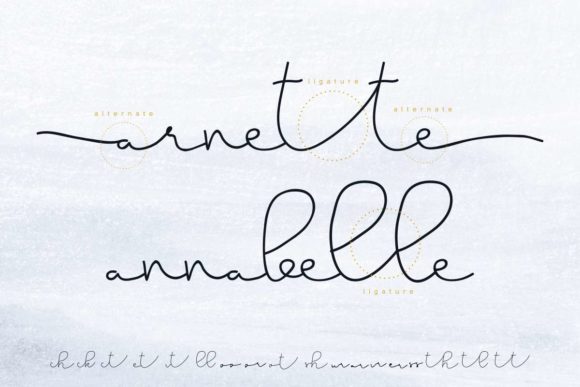 ligature
alternate
alternate
arnette
annabelle
ligature